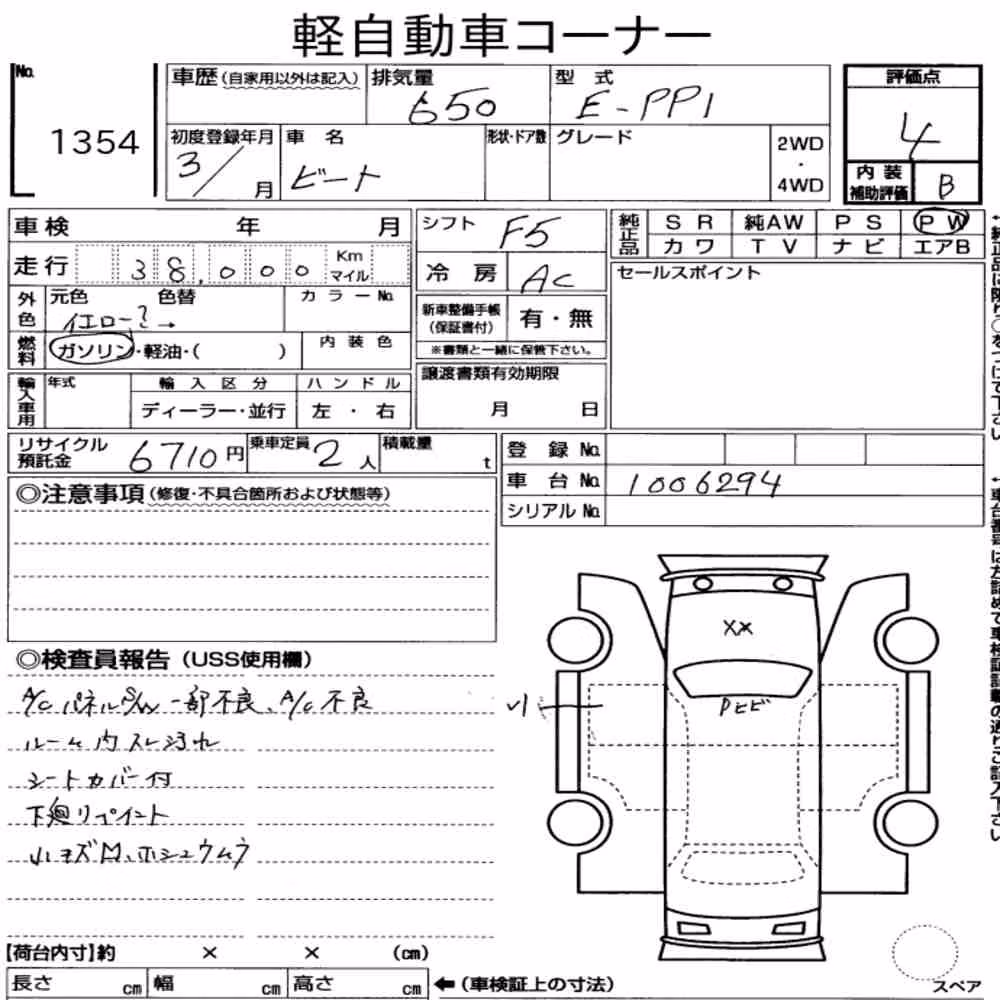 軽自動車コーナー
No.
1354
車歴(自家用以外は記入)
排気量
650
型 式
E-PP1
評価点
4
初度登録年月
3/
月
車 名
ビート
形状・ドア数
グレード
2WD
・
4WD
内 装
補助評価
B
車検 年 月
シフト F5
純正品
S R 純AW P S P W
カワ T V ナビ エアB
走行 38,000
Km
マイル
冷 房 AC
セールスポイント
外色
元色 色替
イエロー
カラーNo.
新車整備手帳
(保証書付)
有・無
※書類と一緒に保管下さい。
燃料
ガソリン・軽油・( )
内 装 色
譲渡書類有効期限
月 日
輸入車用
年式
輸 入 区 分
ディーラー・並行
ハ ン ド ル
左 ・ 右
リサイクル
預託金
6710円
乗車定員
2人
積載量
t
登 録 No.
車 台 No. 1006294
シリアル No.
◎注意事項(修復・不具合箇所および状態等)
◎検査員報告(USS使用欄)
A/CパネルS/W一部不良、A/C不良
ルーム内スレ汚れ
シートカバー付
下廻リペイント
小キズ凹、ホシュウムラ
XX
Pヒビ
【荷台内寸】約 × × (cm)
長さ cm
幅 cm
高さ cm
←(車検証上の寸法)
スペア